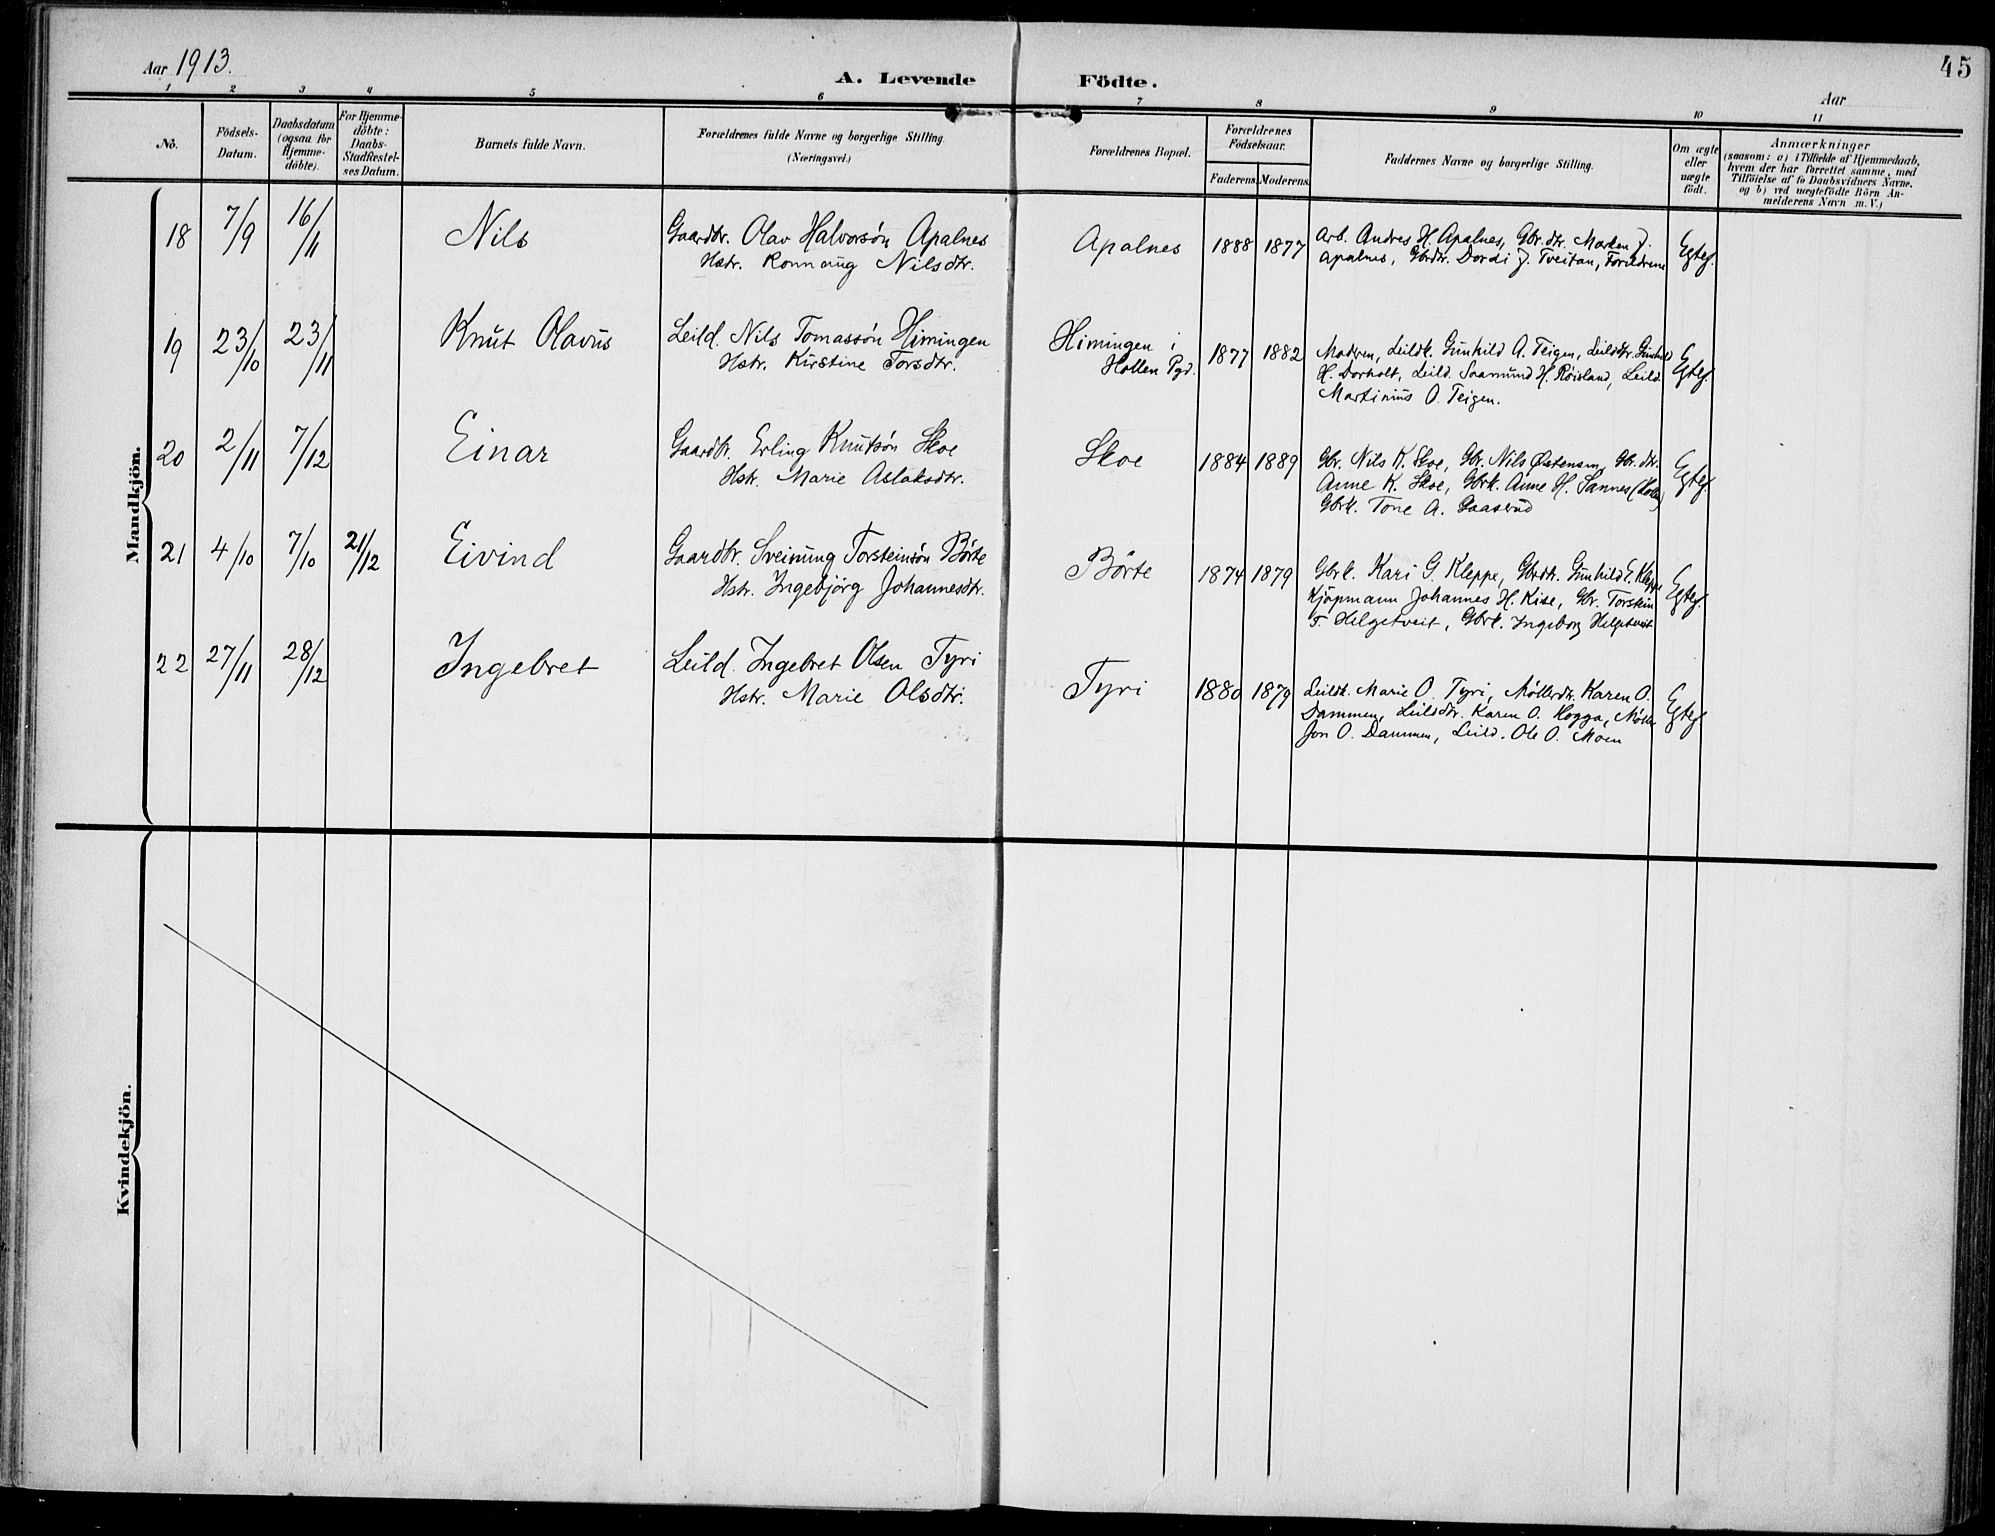 45
Aar 1913.
A. Levende Födte.
Aar
1 2 3 4 5 6 7 8 9 10 11
No.
Födsels-
Datum.
Daabsdatum
(ogsaa for
Hjemme-
döbte).
For Hjemme-
döbte:
Daabs-
Stadfæstel-
ses Datum.
Barnets fulde Navn.
Forældrenes fulde Navne og borgerlige Stilling.
(Næringsvei.)
Forældrenes Bopæl.
Forældrenes
Födselsaar.
Faderens. Moderens.
Faddernes Navne og borgerlige Stilling.
Om ægte
eller
uægte
födt.
Anmærkninger
(saasom: a) i Tilfælde af Hjemmedaab,
hvem der har forrettet samme, med
Tilföielse af to Daabsvidners Navne.
og b) ved uægtefödte Börn An-
melderens Navn m. V.)
Mandkjön.
18 7/9 16/11 Nils
Gaardbr. Olav Halvorsøn Apalnes
Hstr. Ronnaug Nilsdtr.
Apalnes 1888 1877
Arb. Andres H. Apalnes, Gbr. dtr. Marten J.
Apalnes, Gbrdtr. Dordi J. Tveitan, Foreldrene
Egtef.
19 23/10 23/11 Knut Olavus
Leild. Nils Tomassøn Himingen
Hstr. Kirstine Torsdtr.
Himingen i
Hollen Pgd.
1877 1882
Moderen, Leildk. Gunhild A. Teigen, Leilddtr. Gunhild
H. Dorholt, Leild. Saamund H. Røisland, Leild.
Martinius O. Teigen.
Egtef.
20 2/11 7/12 Einar
Gaardbr. Erling Knutsøn Skoe
Hstr. Marie Aslaksdtr.
Skoe 1884 1889
Gbr. Nils K. Skoe, Gbr. Nils Østensen, Gbr. dtr.
Anne K. Skoe, Gbrk. Anne H. Sannes
Gbrk. Tone A. Gaaserud
Egtef.
21 4/10 7/10 21/12 Eivind
Gaardbr. Sveinung Torsteinsøn Børte
Hstr. Ingebjørg Johannesdtr.
Børte 1874 1879
Gbrk. Kari G. Kleppe, Gbrdtr. Gunhild E. Kleppe
Kjøpmann Johannes H. Kise, Gbr. Torstein
T. Helgetveit, Gbrk. Ingeborg Helgetveit
Egtef.
22 27/11 28/12 Ingebret
Leild. Ingebret Olsen Tyri
Hstr. Marie Olsdtr.
Tyri 1880 1879
Leildk. Marie O. Tyri, Møllerdtr. Karen O.
Dammen, Leildsdtr. Karen O. Hogga, Møller
Jon O. Dammen, Leild. Ole O. Moen
Egtef.
Kvindekjön.